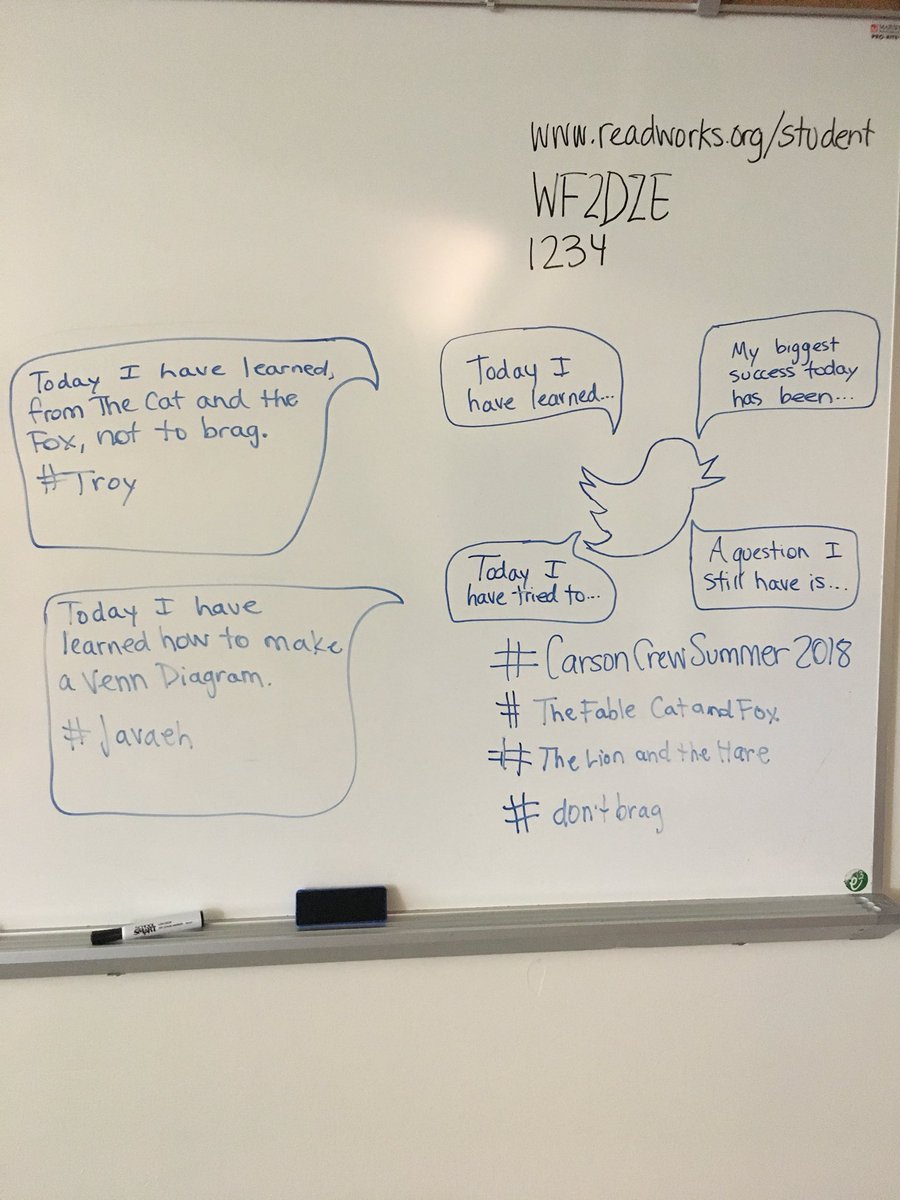 www.readworks.org/student
WF2DZE
1234
Today I have learned,
from The Cat and the
Fox, not to brag.
#Troy
Today I have
learned how to make
a Venn Diagram.
#Javaeh
Today I
have learned...
My biggest
success today
has been...
Today I
have tried to...
A question I
still have is...
#CarsonCrewSummer2018
# The Fable Cat and Fox
# The Lion and the Hare
# don't brag